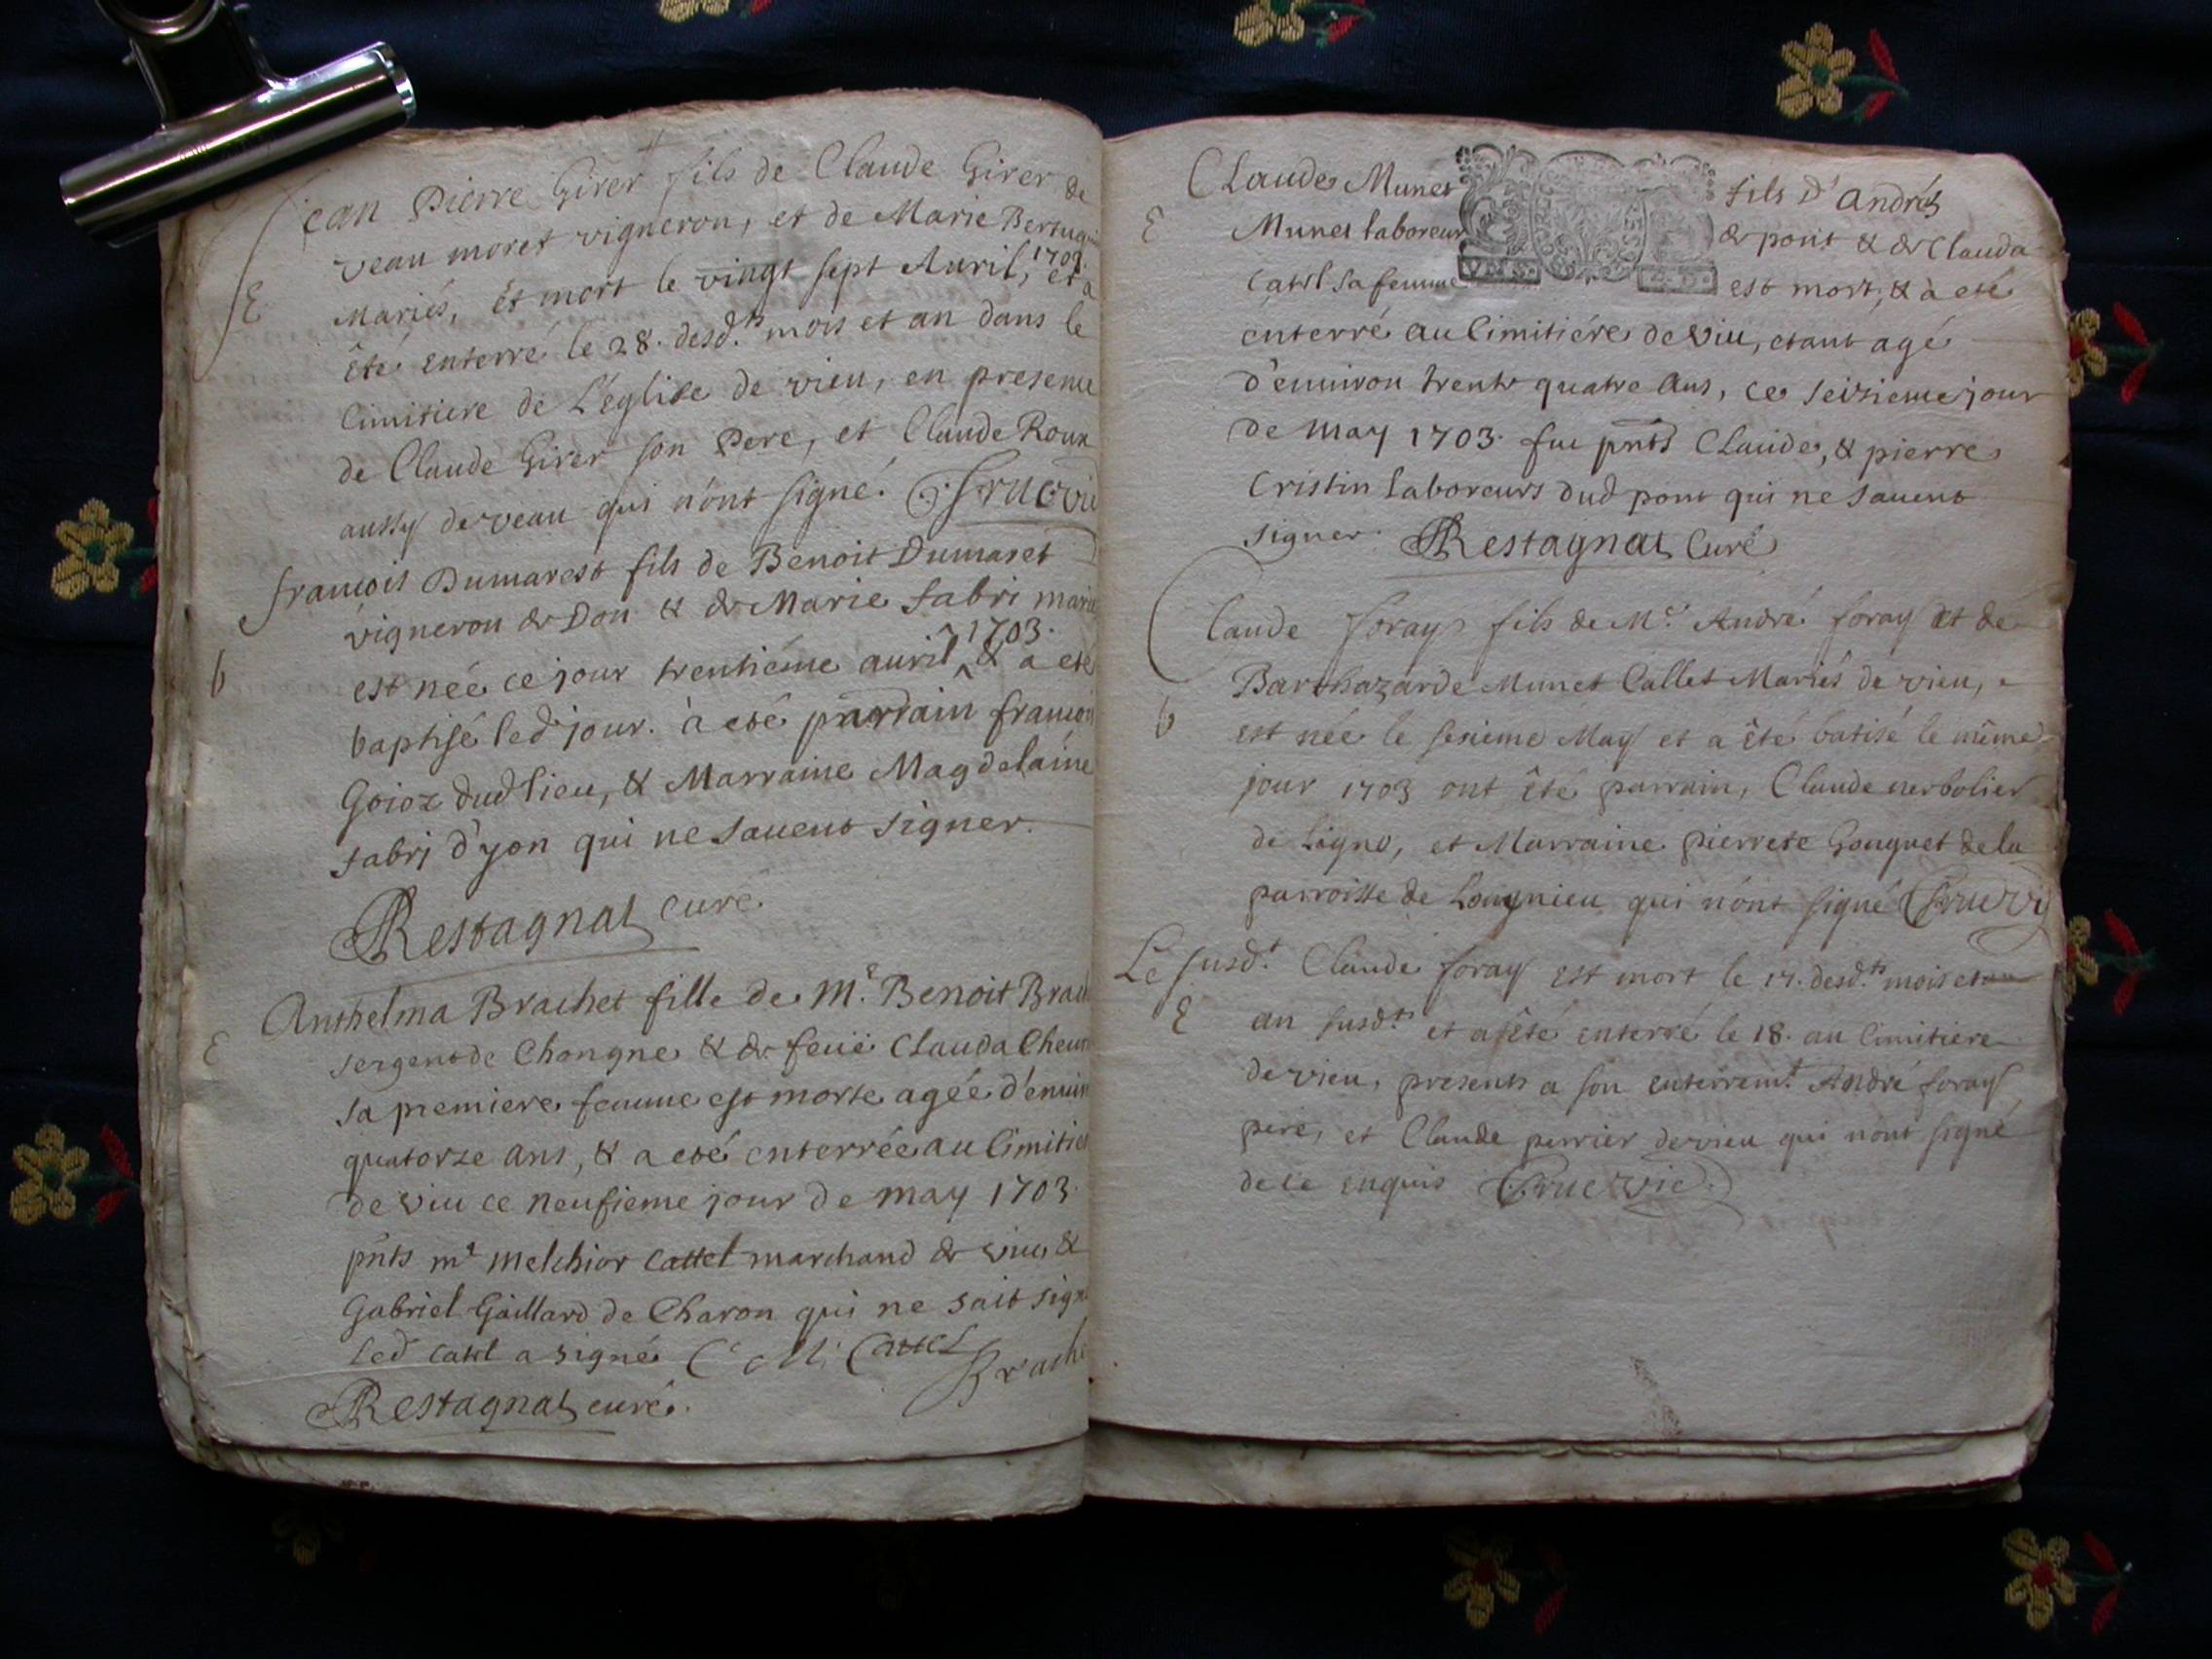 Jean Pierre Girer fils de Claude Girer de
veau moret vigneron, et de Marie
Mariés, êt mort le vingt sept Auril, 1703. et a
êté enterré le 28. desd.ts mois et an dans le
Cimitiere de L'églize de vieu, en presence
de Claude Girer son Pere, et Claude Roux
aussy de veau qui n'ont signé.
françois Dumarest fils de Benoit Dumaret
vigneron de Don & de Marie fabri
est née ce jour trentiéme auril 1703. & a eté
baptisé led jour. à eté parrain françois
Goioz dud lieu, & Marraine Magdelaine
fabri d'yon qui ne sauent signer.
Restagnat curé
Anthelma Brachet fille de M.e Benoit
E sergent de Chongne & de feüe Clauda
sa premiere femme est morte agée d'enuir
quatorze ans, & a eté enterrée au Cimitie
de Viu ce neufieme jour de may 1703.
pnts mr melchior Cattel marchand de viu, &
Gabriel Gaillard de Charon qui ne sait sign
led Catel a signé C M. Cattel
Brache
Restagnat curé.
Claude Munet fils d'André
E Munet laboreur de pont & de Clauda
Catel sa femme est mort, & à eté
enterré au Cimitiére de Viu, etant agé
d'enuiron trente quatre ans, ce seizieme jour
de may 1703. fue pnts Claude, & pierre
Cristin laboreurs dud pont qui ne sauent
signer. Restagnat Curé
Claude foray fils de M.e André foray et de
Barthazarde Munet Callet Mariés de vieu,
b est née le sezieme May et a êté batisé le même
jour 1703 ont êté parrain, Claude nerbolier
de Ligno, et Marraine pierrete Gouguet de la
parroisse de Longnieu qui n'ont signé
Le susd.t Claude foray est mort le 17. desd.ts mois et
E an susd.ts et a êté enterré le 18. au Cimitiere
de vieu, presents a son enterrem.t André foray
pere, et Claude perrier de vieu qui n'ont signé
de ce enquis